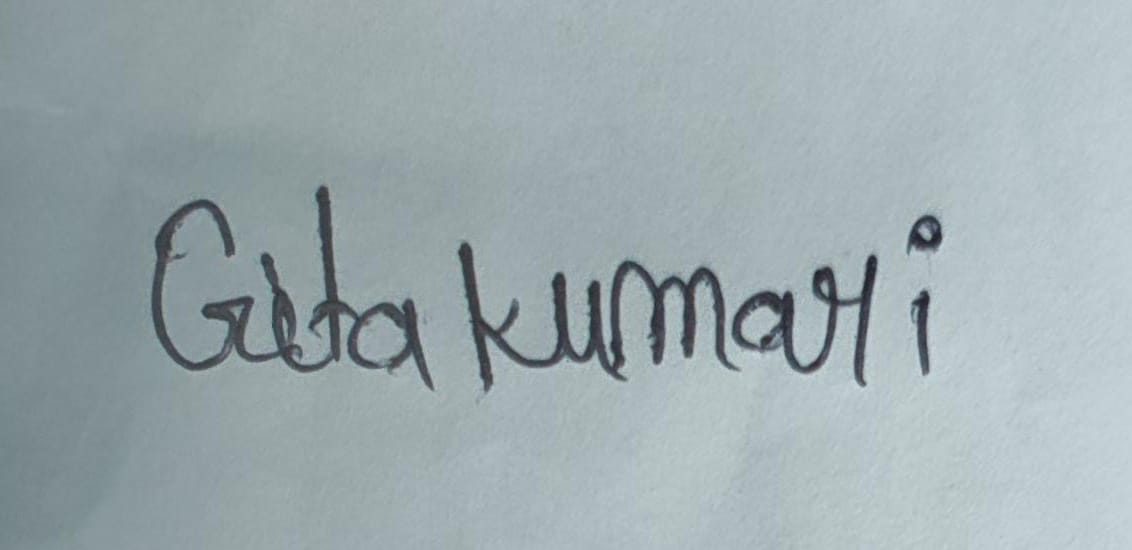 Gita kumari